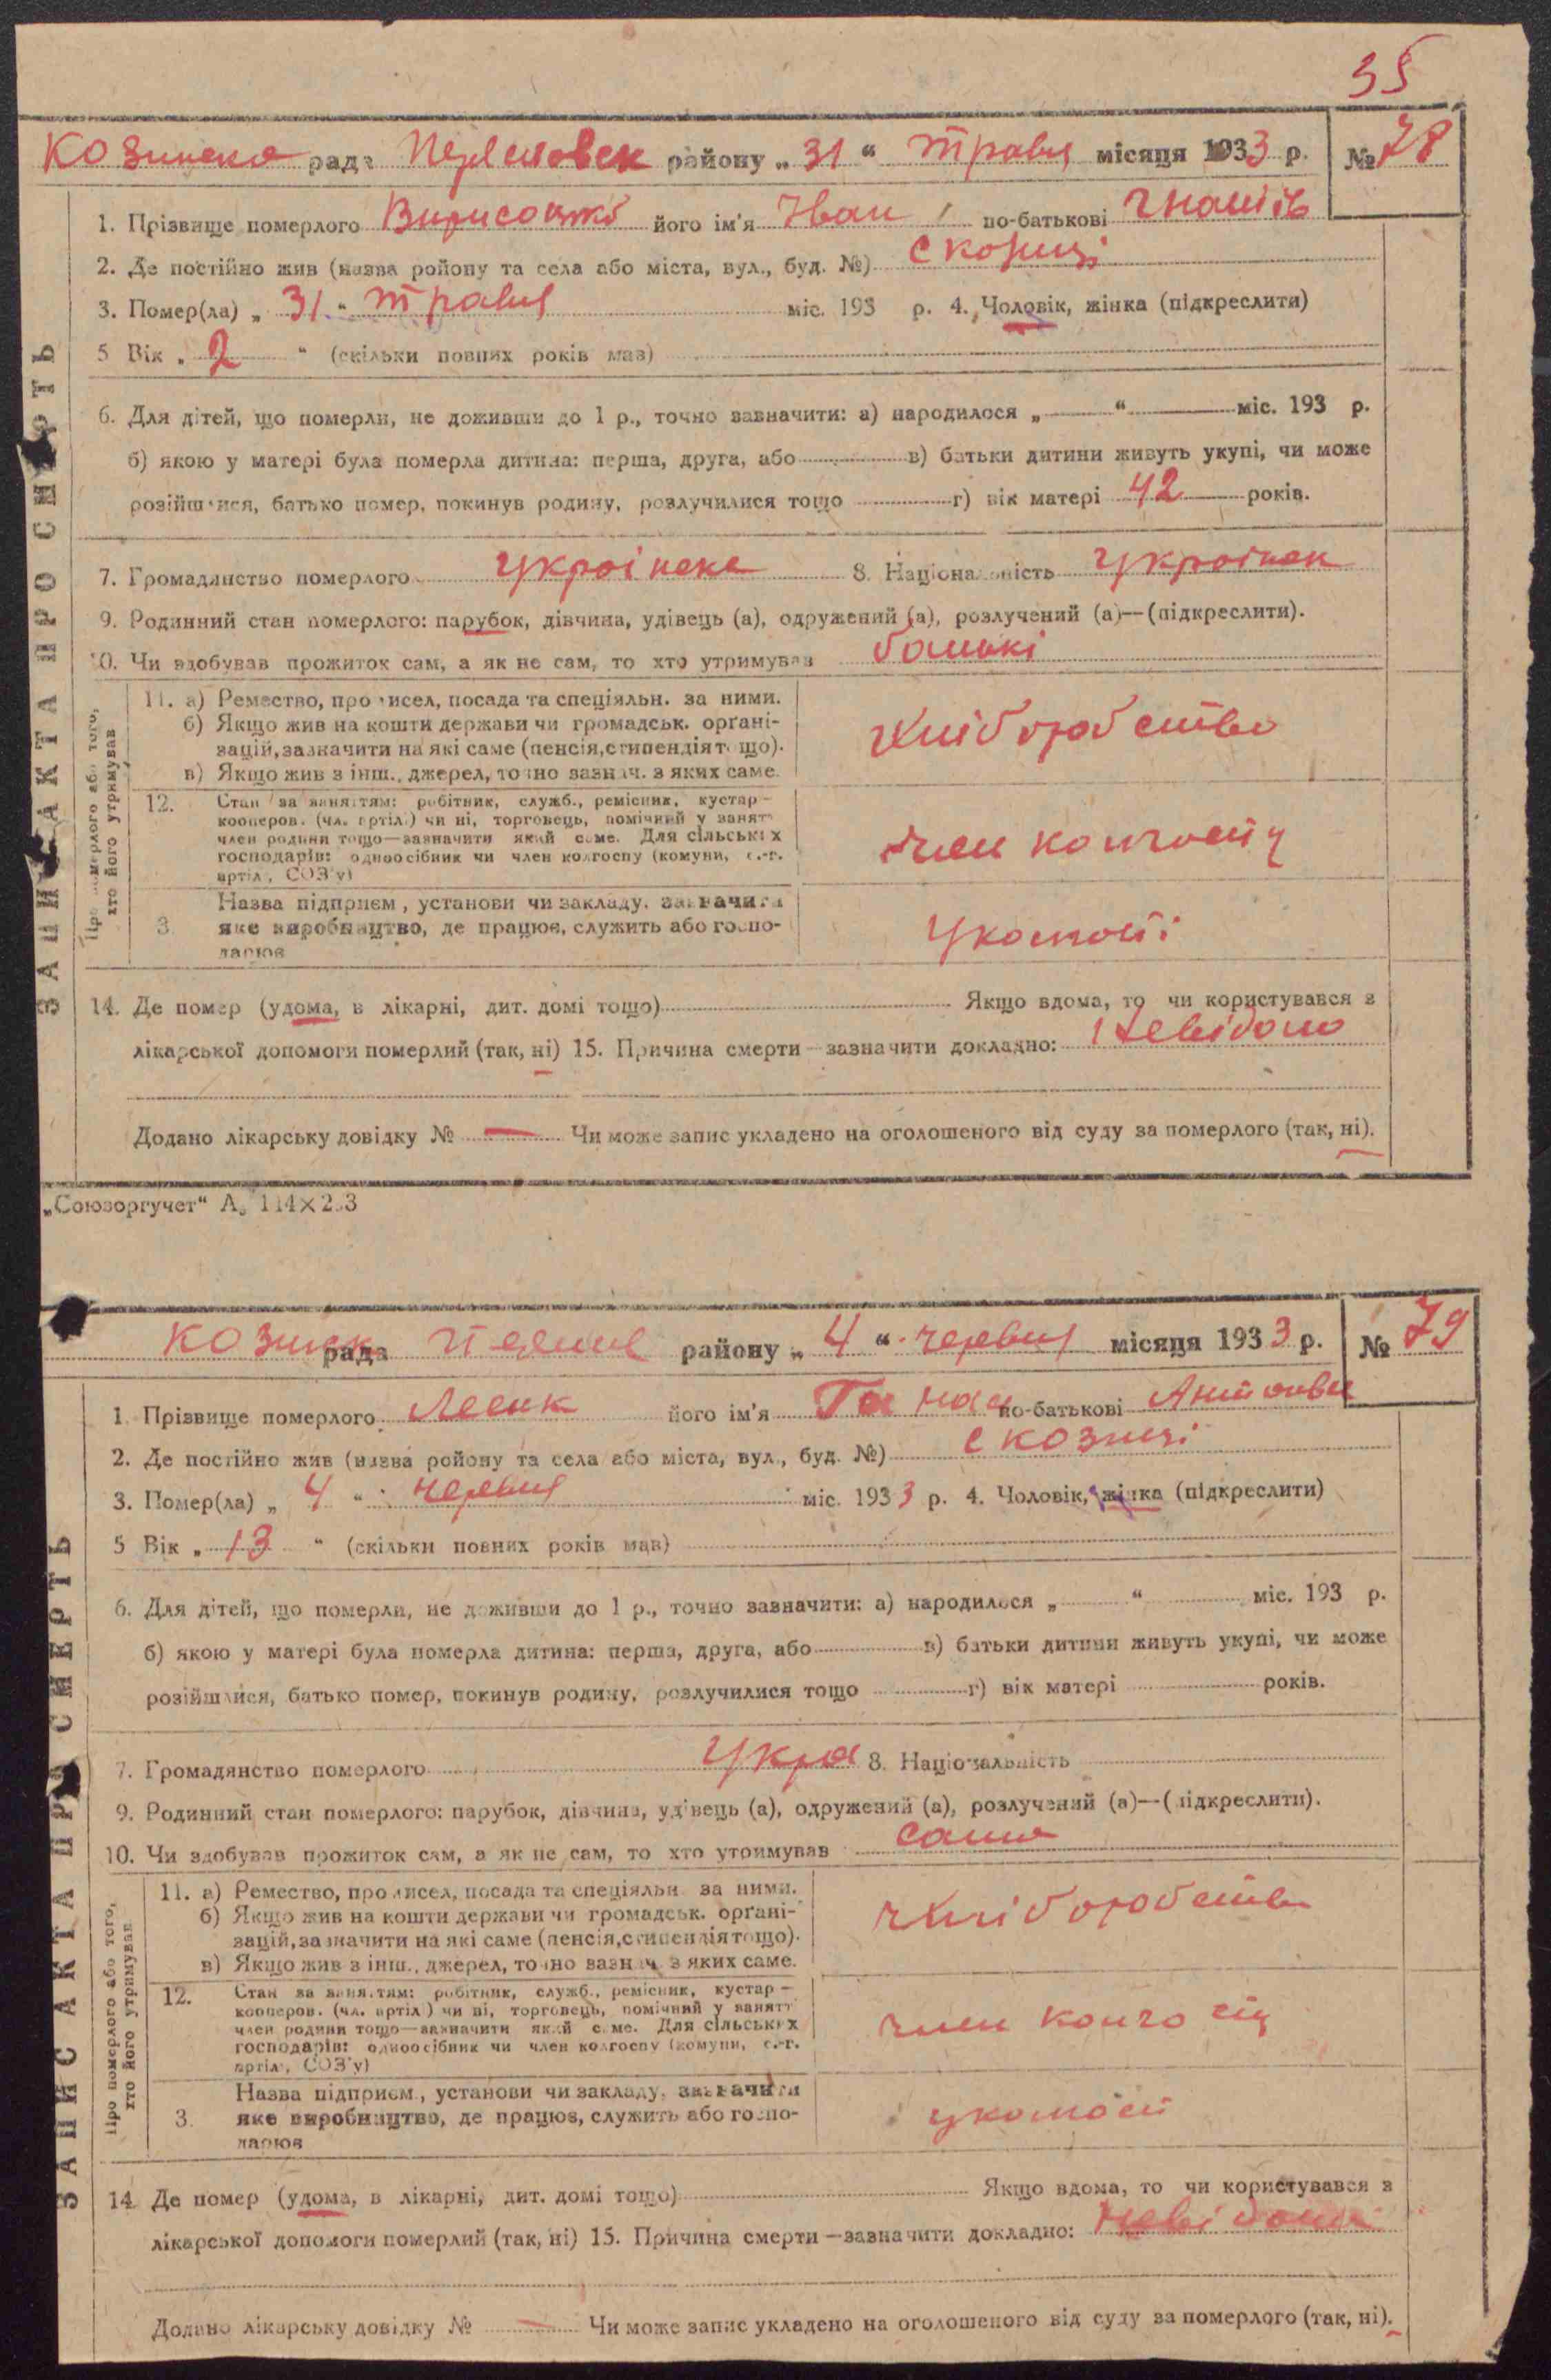 35
рада району „ 31 “ травня місяця 1933 р. № 78
1. Прізвище померлого його ім'я Іван по-батькові
2. Де постійно жив (назва району та села або міста, вул., буд. №)
3. Помер(ла) „ 31 “ травня міс. 193 р. 4. Чоловік, жінка (підкреслити)
5 Вік „ 2 “ (скільки повних років мав)
6. Для дітей, що померли, не доживши до 1 р., точно зазначити: а) народилося „ “ міс. 193 р.
б) якою у матері була померла дитина: перша, друга, або в) батьки дитини живуть укупі, чи може
розійшлися, батько помер, покинув родину, розлучилися тощо г) вік матері 42 років.
7. Громадянство померлого 8. Національність
9. Родинний стан померлого: парубок, дівчина, удівець (а), одружений (а), розлучений (а)—(підкреслити).
10. Чи здобував прожиток сам, а як не сам, то хто утримував
11. а) Ремество, промисел, посада та спеціяльн. за ними.
б) Якщо жив на кошти держави чи громадськ. орґані-
зацій, зазначити на які саме (пенсія, стипендія тощо).
в) Якщо жив з інш., джерел, точно зазнач. з яких саме.
12. Стан за заняттям: робітник, служб., ремісник, кустар—
кооперов. (чл. артіл.) чи ні, торговець, помічний у занятті
член родини тощо—зазначити який саме. Для сільських
господарів: одноосібник чи член колгоспу (комуни, с.-г.
артіл., СОЗ'у)
член
3. Назва підприєм., установи чи закладу, зазначити
яке виробництво, де працює, служить або госпо-
дарює
14. Де помер (удома, в лікарні, дит. домі тощо) Якщо вдома, то чи користувався з
лікарської допомоги померлий (так, ні) 15. Причина смерти—зазначити докладно: Невідомо
Додано лікарську довідку № — Чи може запис укладено на оголошеного від суду за померлого (так, ні).
ЗАПИС АКТА ПРО СМЕРТЬ
Про померлого або того,
хто його утримував
„Союзоргучет“
рада району „ 4 “ червня місяця 1933 р. № 79
1. Прізвище померлого його ім'я по-батькові
2. Де постійно жив (назва району та села або міста, вул., буд. №)
3. Помер(ла) „ 4 “ червня міс. 1933 р. 4. Чоловік, жінка (підкреслити)
5 Вік „ 13 “ (скільки повних років мав)
6. Для дітей, що померли, не доживши до 1 р., точно зазначити: а) народилося „ “ міс. 193 р.
б) якою у матері була померла дитина: перша, друга, або в) батьки дитини живуть укупі, чи може
розійшлися, батько помер, покинув родину, розлучилися тощо г) вік матері років.
7. Громадянство померлого Укра 8. Національність
9. Родинний стан померлого: парубок, дівчина, удівець (а), одружений (а), розлучений (а)—(підкреслити).
10. Чи здобував прожиток сам, а як не сам, то хто утримував сама
11. а) Ремество, промисел, посада та спеціяльн. за ними.
б) Якщо жив на кошти держави чи громадськ. орґані-
зацій, зазначити на які саме (пенсія, стипендія тощо).
в) Якщо жив з інш., джерел, точно зазнач. з яких саме.
12. Стан за заняттям: робітник, служб., ремісник, кустар—
кооперов. (чл. артіл.) чи ні, торговець, помічний у занятті
член родини тощо—зазначити який саме. Для сільських
господарів: одноосібник чи член колгоспу (комуни, с.-г.
артіл., СОЗ'у)
член
3. Назва підприєм., установи чи закладу, зазначити
яке виробництво, де працює, служить або госпо-
дарює
14. Де помер (удома, в лікарні, дит. домі тощо) Якщо вдома, то чи користувався з
лікарської допомоги померлий (так, ні) 15. Причина смерти—зазначити докладно:
Додано лікарську довідку № — Чи може запис укладено на оголошеного від суду за померлого (так, ні).
ЗАПИС АКТА ПРО СМЕРТЬ
Про померлого або того,
хто його утримував